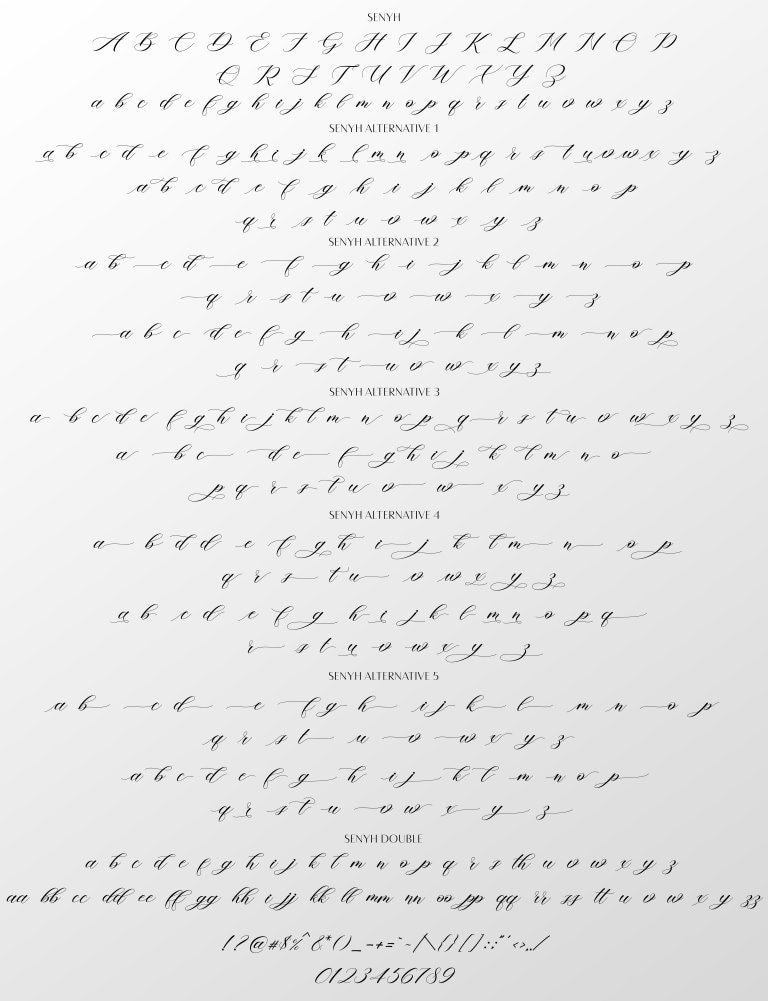 SENYH
A B C D E F G H I J K L M N O P
Q R S T U V W X Y Z
a b c d e f g h i j k l m n o p q r s t u v w x y z
SENYH ALTERNATIVE 1
a b c d e f g h i j k l m n o p q r s t u v w x y z
a b c d e f g h i j k l m n o p
q r s t u v w x y z
SENYH ALTERNATIVE 2
a b c d e f g h i j k l m n o p
q r s t u v w x y z
a b c d e f g h i j k l m n o p
q r s t u v w x y z
SENYH ALTERNATIVE 3
a b c d e f g h i j k l m n o p q r s t u v w x y z
a b c d e f g h i j k l m n o
p q r s t u v w x y z
SENYH ALTERNATIVE 4
a b d d e f g h i j k l m n o p
q r s t u v w x y z
a b c d e f g h i j k l m n o p q
r s t u v w x y z
SENYH ALTERNATIVE 5
a b c d e f g h i j k l m n o p
q r s t u v w x y z
a b c d e f g h i j k l m n o p
q r s t u v w x y z
SENYH DOUBLE
a b c d e f g h i j k l m n o p q r s th u v w x y z
aa bb cc dd ee ff gg hh i jj kk ll mm nn oo pp qq rr ss tt u v w x y zz
!?@#$%^&*()_-+=`~/\{}[]:;"'<>,./
0123456789